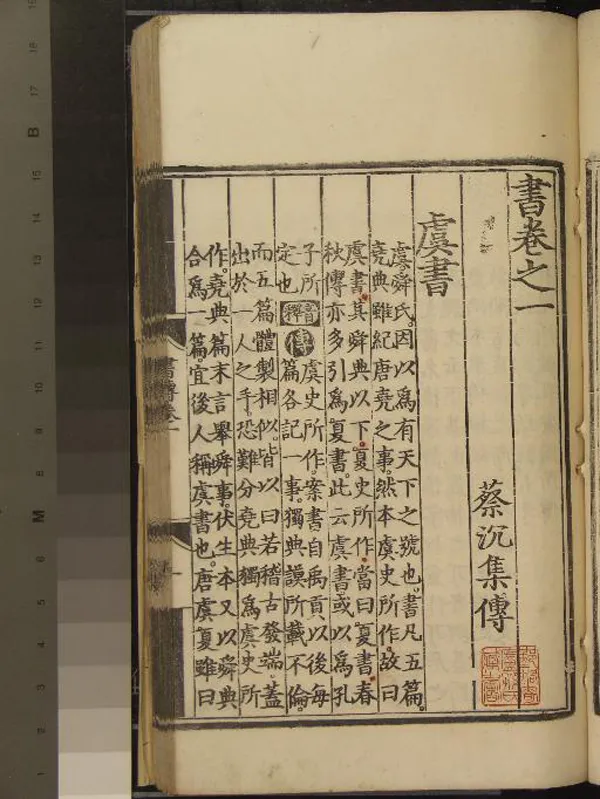 書卷之一
蔡沉集傳
虞書
虞舜氏。因以爲有天下之號也。書凡五篇。
堯典雖紀唐堯之事。然本虞史所作。故曰
虞書。其舜典以下。夏史所作。當曰夏書。春
秋傳亦多引爲夏書。此云虞書。或以爲孔
子所
定也
音釋
傳
虞史所作。案書自禹貢以後。每
篇各記一事。獨典謨所載不倫。
而五篇體製相似。皆以曰若稽古發端。蓋
出於一人之手。恐難分堯典獨爲虞史所
作。堯典篇末言舉舜事。伏生本又以舜典
合爲一篇。宜後人稱虞書也。唐虞夏雖曰
書傳卷一